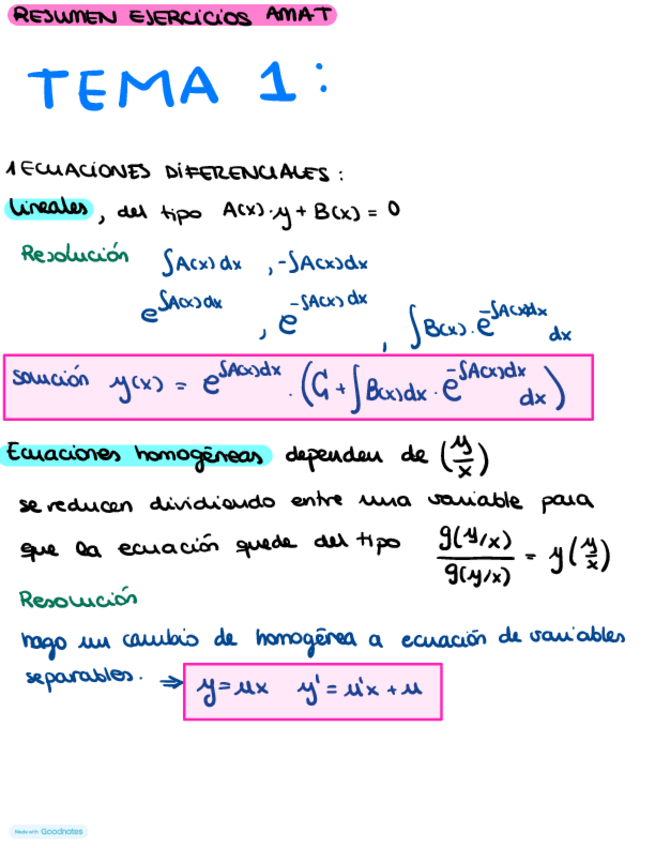 RESUMEN EJERCICIOS AMAT
TEMA 1:
1 ECUACIONES DIFERENCIALES:
Lineales, del tipo A(x)·y + B(x) = 0
Resolución ∫A(x)dx , -∫A(x)dx
e^∫A(x)dx , e^-∫A(x)dx , ∫B(x)·e^-∫A(x)dx dx
solución y(x) = e^∫A(x)dx · (C + ∫B(x)dx · e^-∫A(x)dx dx)
Ecuaciones homogéneas dependen de (y/x)
se reducen dividiendo entre una variable para
que la ecuación quede del tipo g(y/x)/g(y/x) = y(y/x)
Resolución
hago un cambio de homogénea a ecuación de variables
separables. ⇒ y = ux y' = u'x + u
Made with Goodnotes